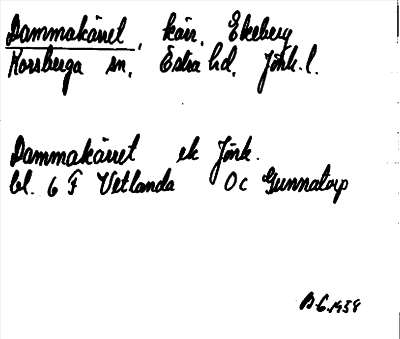 Dammakärret, kärr, Ekeberg
Korsberga sn, Östra hd, Jönk. l.
Dammakärret ek Jönk.
bl. 6 F Vetlanda Oc Gunnatorp
1938